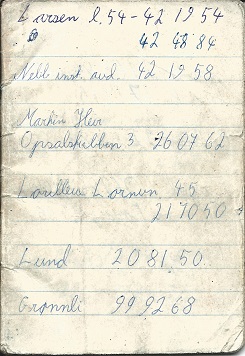 Larsen l. 54 - 42 19 54
42 48 84
Nebb inst. avd. 42 19 58
Martin Heir
Opsalstubben 3 26 07 62
45
21 70 50
Lund 20 81 50
Grønnli 99 92 68